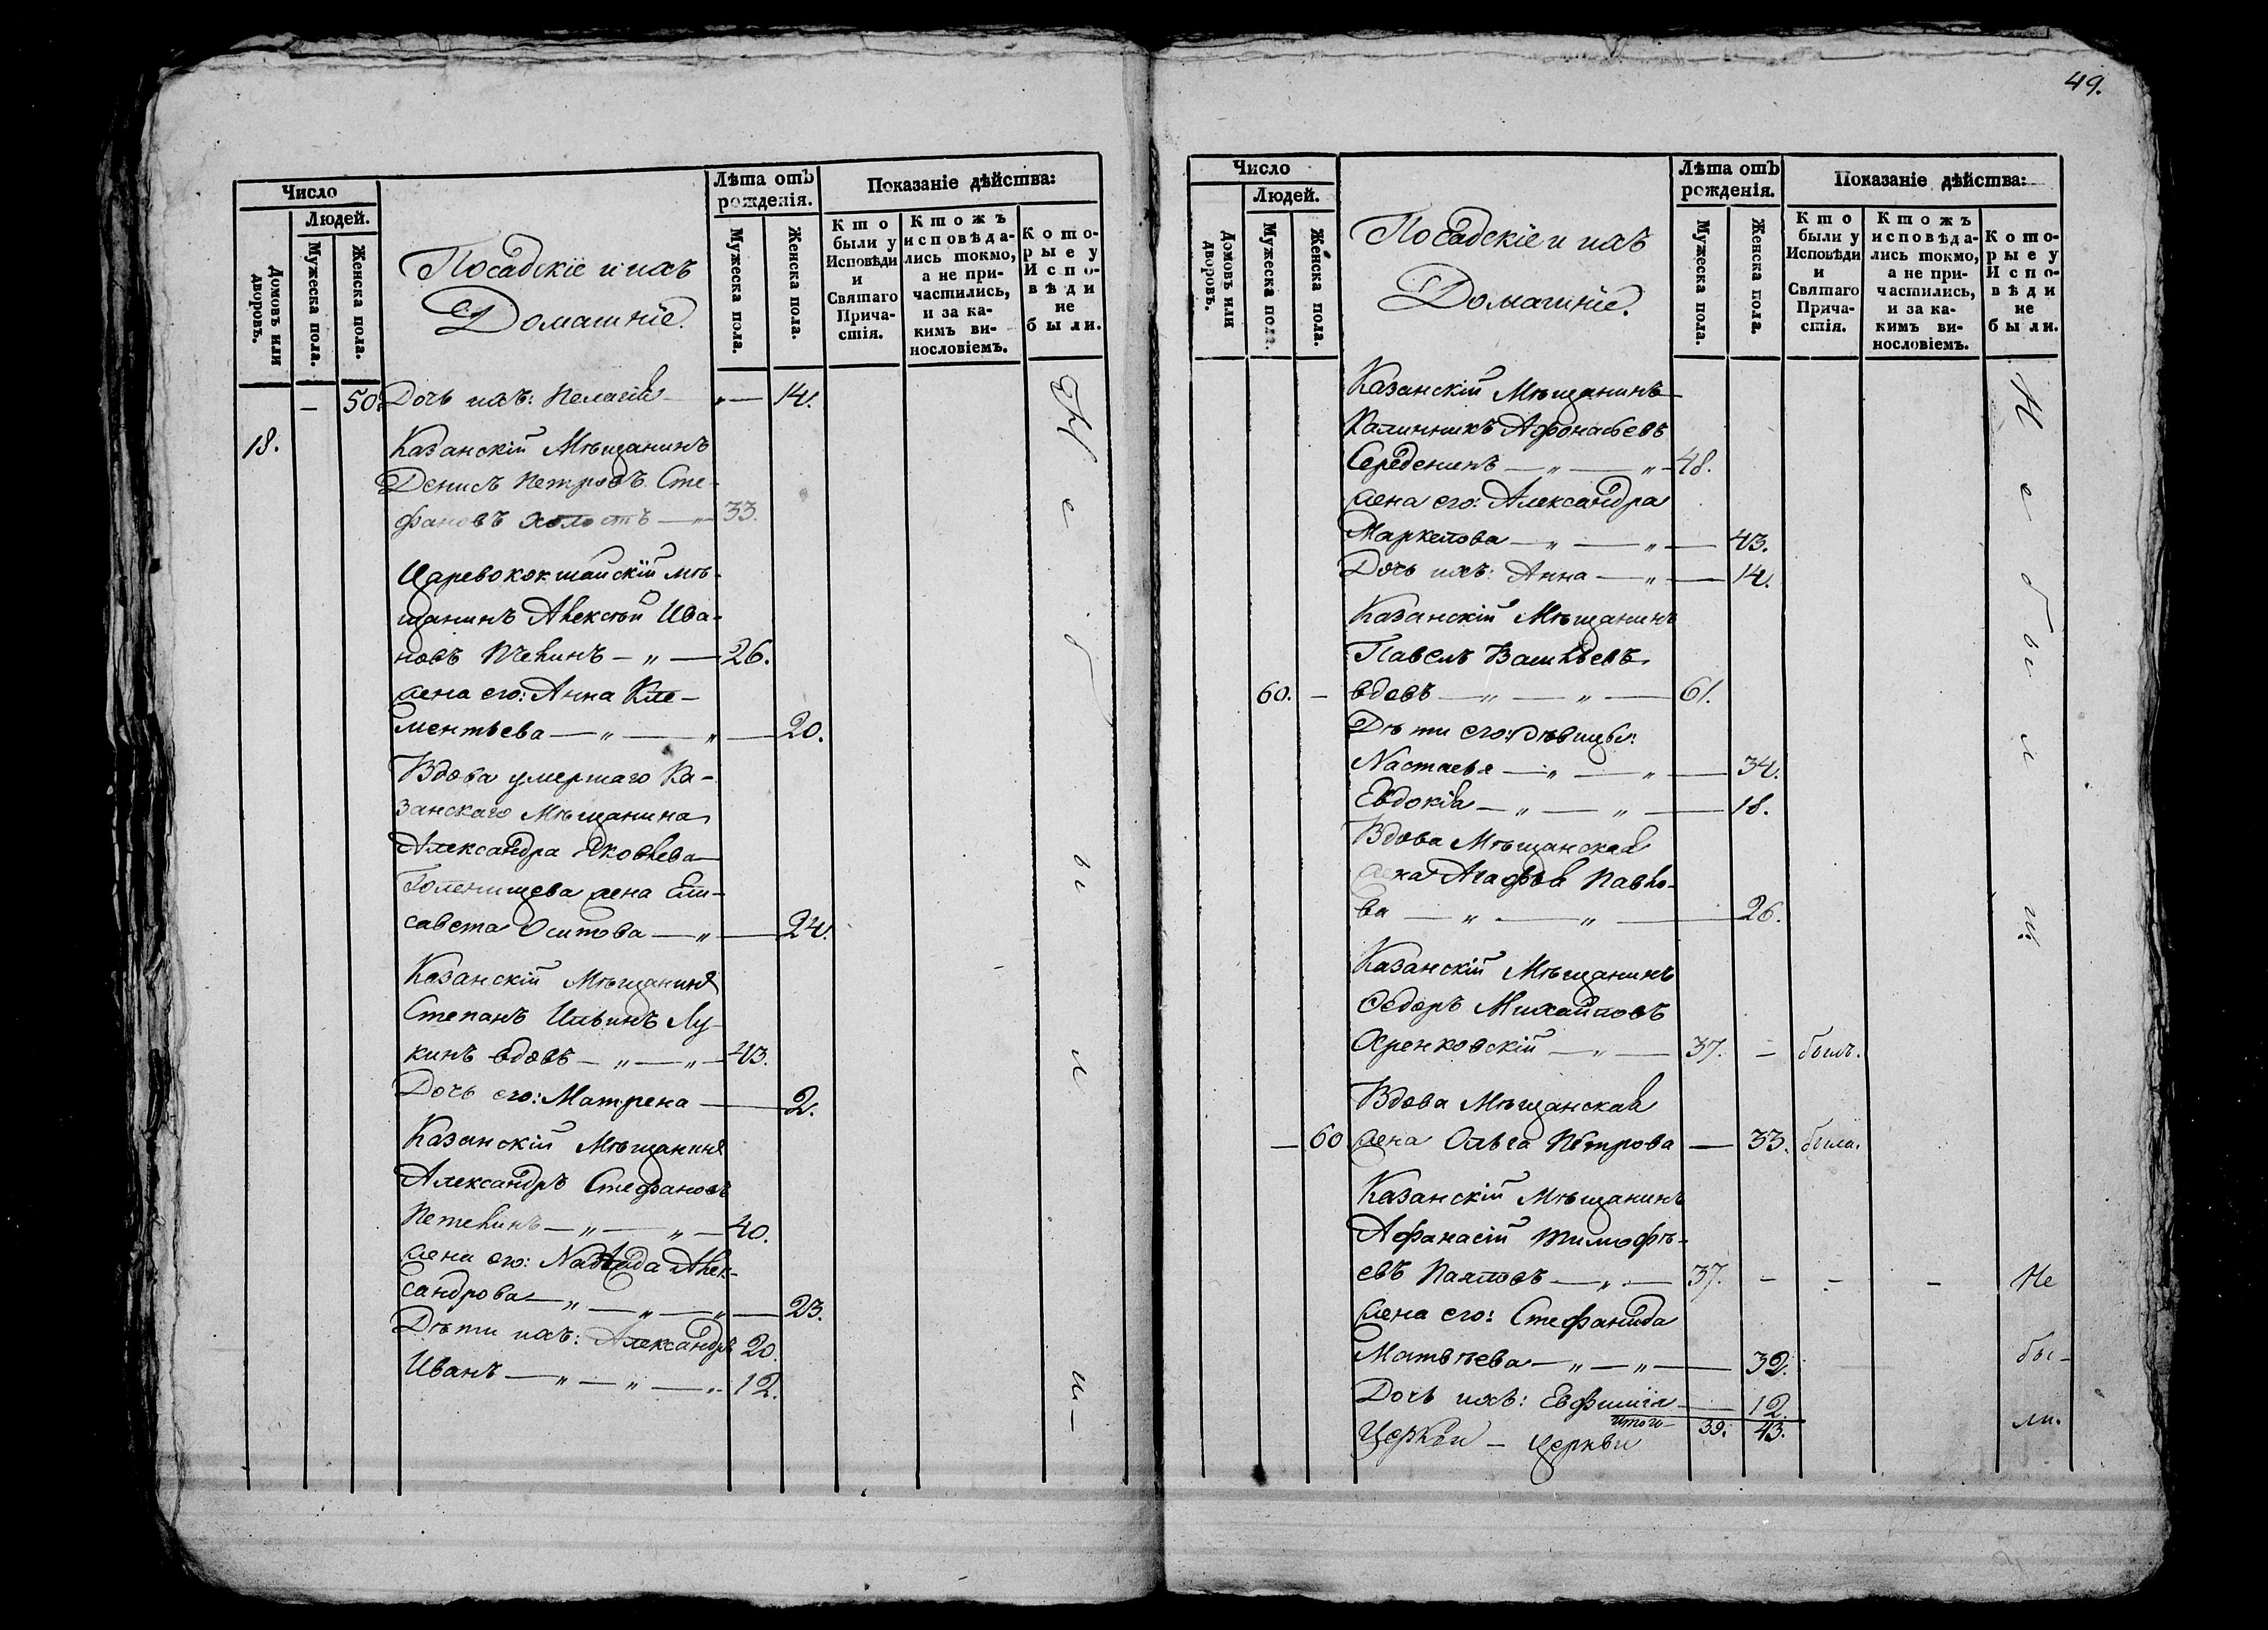 49.
Число
Людей.
Домовъ или дворовъ.
Мужеска пола.
Женска пола.
Посадскіе и ихъ
Домашніе.
Лѣта отъ
рожденія.
Мужеска пола.
Женска пола.
Показаніе дѣйства:
Кто
были у
Исповѣди
и
Святаго
Прича-
стія.
Ктожъ
исповѣда-
лись токмо,
а не при-
частились,
и за ка-
кимъ ви-
нословіемъ.
Кото-
рые у
Испо-
вѣди
не
были.
— 50. Дочь ихъ: Пелагія — 14.
18. Казанскій Мѣщанинъ
Денисъ Петровъ Сте-
фановъ холостъ — 33.
Царевококшайскій мѣ-
щанинъ Алексѣй Ива-
новъ Пчелинъ — „ — 26.
жена его: Анна Кле-
ментьева — „ — „ — 20.
Вдова умершаго Ка-
занскаго Мѣщанина
Александра Яковлева
Голенищева жена Ели-
савета Осипова — „ — 24.
Казанскій Мѣщанинъ
Степанъ Ильинъ Лу-
кинъ вдовъ — „ — „ — 43.
Дочь его: Матрена — 2.
Казанскій Мѣщанинъ
Александръ Стефановъ
Петелинъ — „ — „ — 40.
жена его: Надежда Алек-
сандрова — „ — „ — „ — 23.
Дѣти ихъ: Александръ 20.
Иванъ — „ — „ — „ 12.
Не были
Число
Людей.
Домовъ или дворовъ.
Мужеска пола.
Женска пола.
Посадскіе и ихъ
Домашніе.
Лѣта отъ
рожденія.
Мужеска пола.
Женска пола.
Показаніе дѣйства:
Кто
были у
Исповѣди
и
Святаго
Прича-
стія.
Ктожъ
исповѣда-
лись токмо,
а не при-
частились,
и за ка-
кимъ ви-
нословіемъ.
Кото-
рые у
Испо-
вѣди
не
были.
Казанскій Мѣщанинъ
Калинникъ Афонасьевъ
Середенинъ — „ — „ — 48.
жена его: Александра
Маркелова — „ — „ — 43.
Дочь ихъ: Анна — „ — 14.
Казанскій Мѣщанинъ
Павелъ Васильевъ
60. — вдовъ — „ — „ — 61.
Дѣти его: дѣвицы:
Настасья — „ — „ — 34.
Евдокія — „ — „ — 18.
Вдова Мѣщанская
жена Агафья Павло-
ва — „ — „ — 26.
Не были
Казанскій Мѣщанинъ
Ѳедоръ Михайловъ
Хренковскій — „ — 37. — былъ.
Вдова Мѣщанская
— 60 жена Ольга Петрова — 33. была.
Казанскій Мѣщанинъ
Афанасій Тимофѣ-
евъ Паяловъ — „ — 37. — — — Не
жена его: Стефанида
Матвѣева — „ — „ — 32. бы-
Дочь ихъ: Евфимія — 12
Итого 39. 43. ли.
Церкви — Церкви